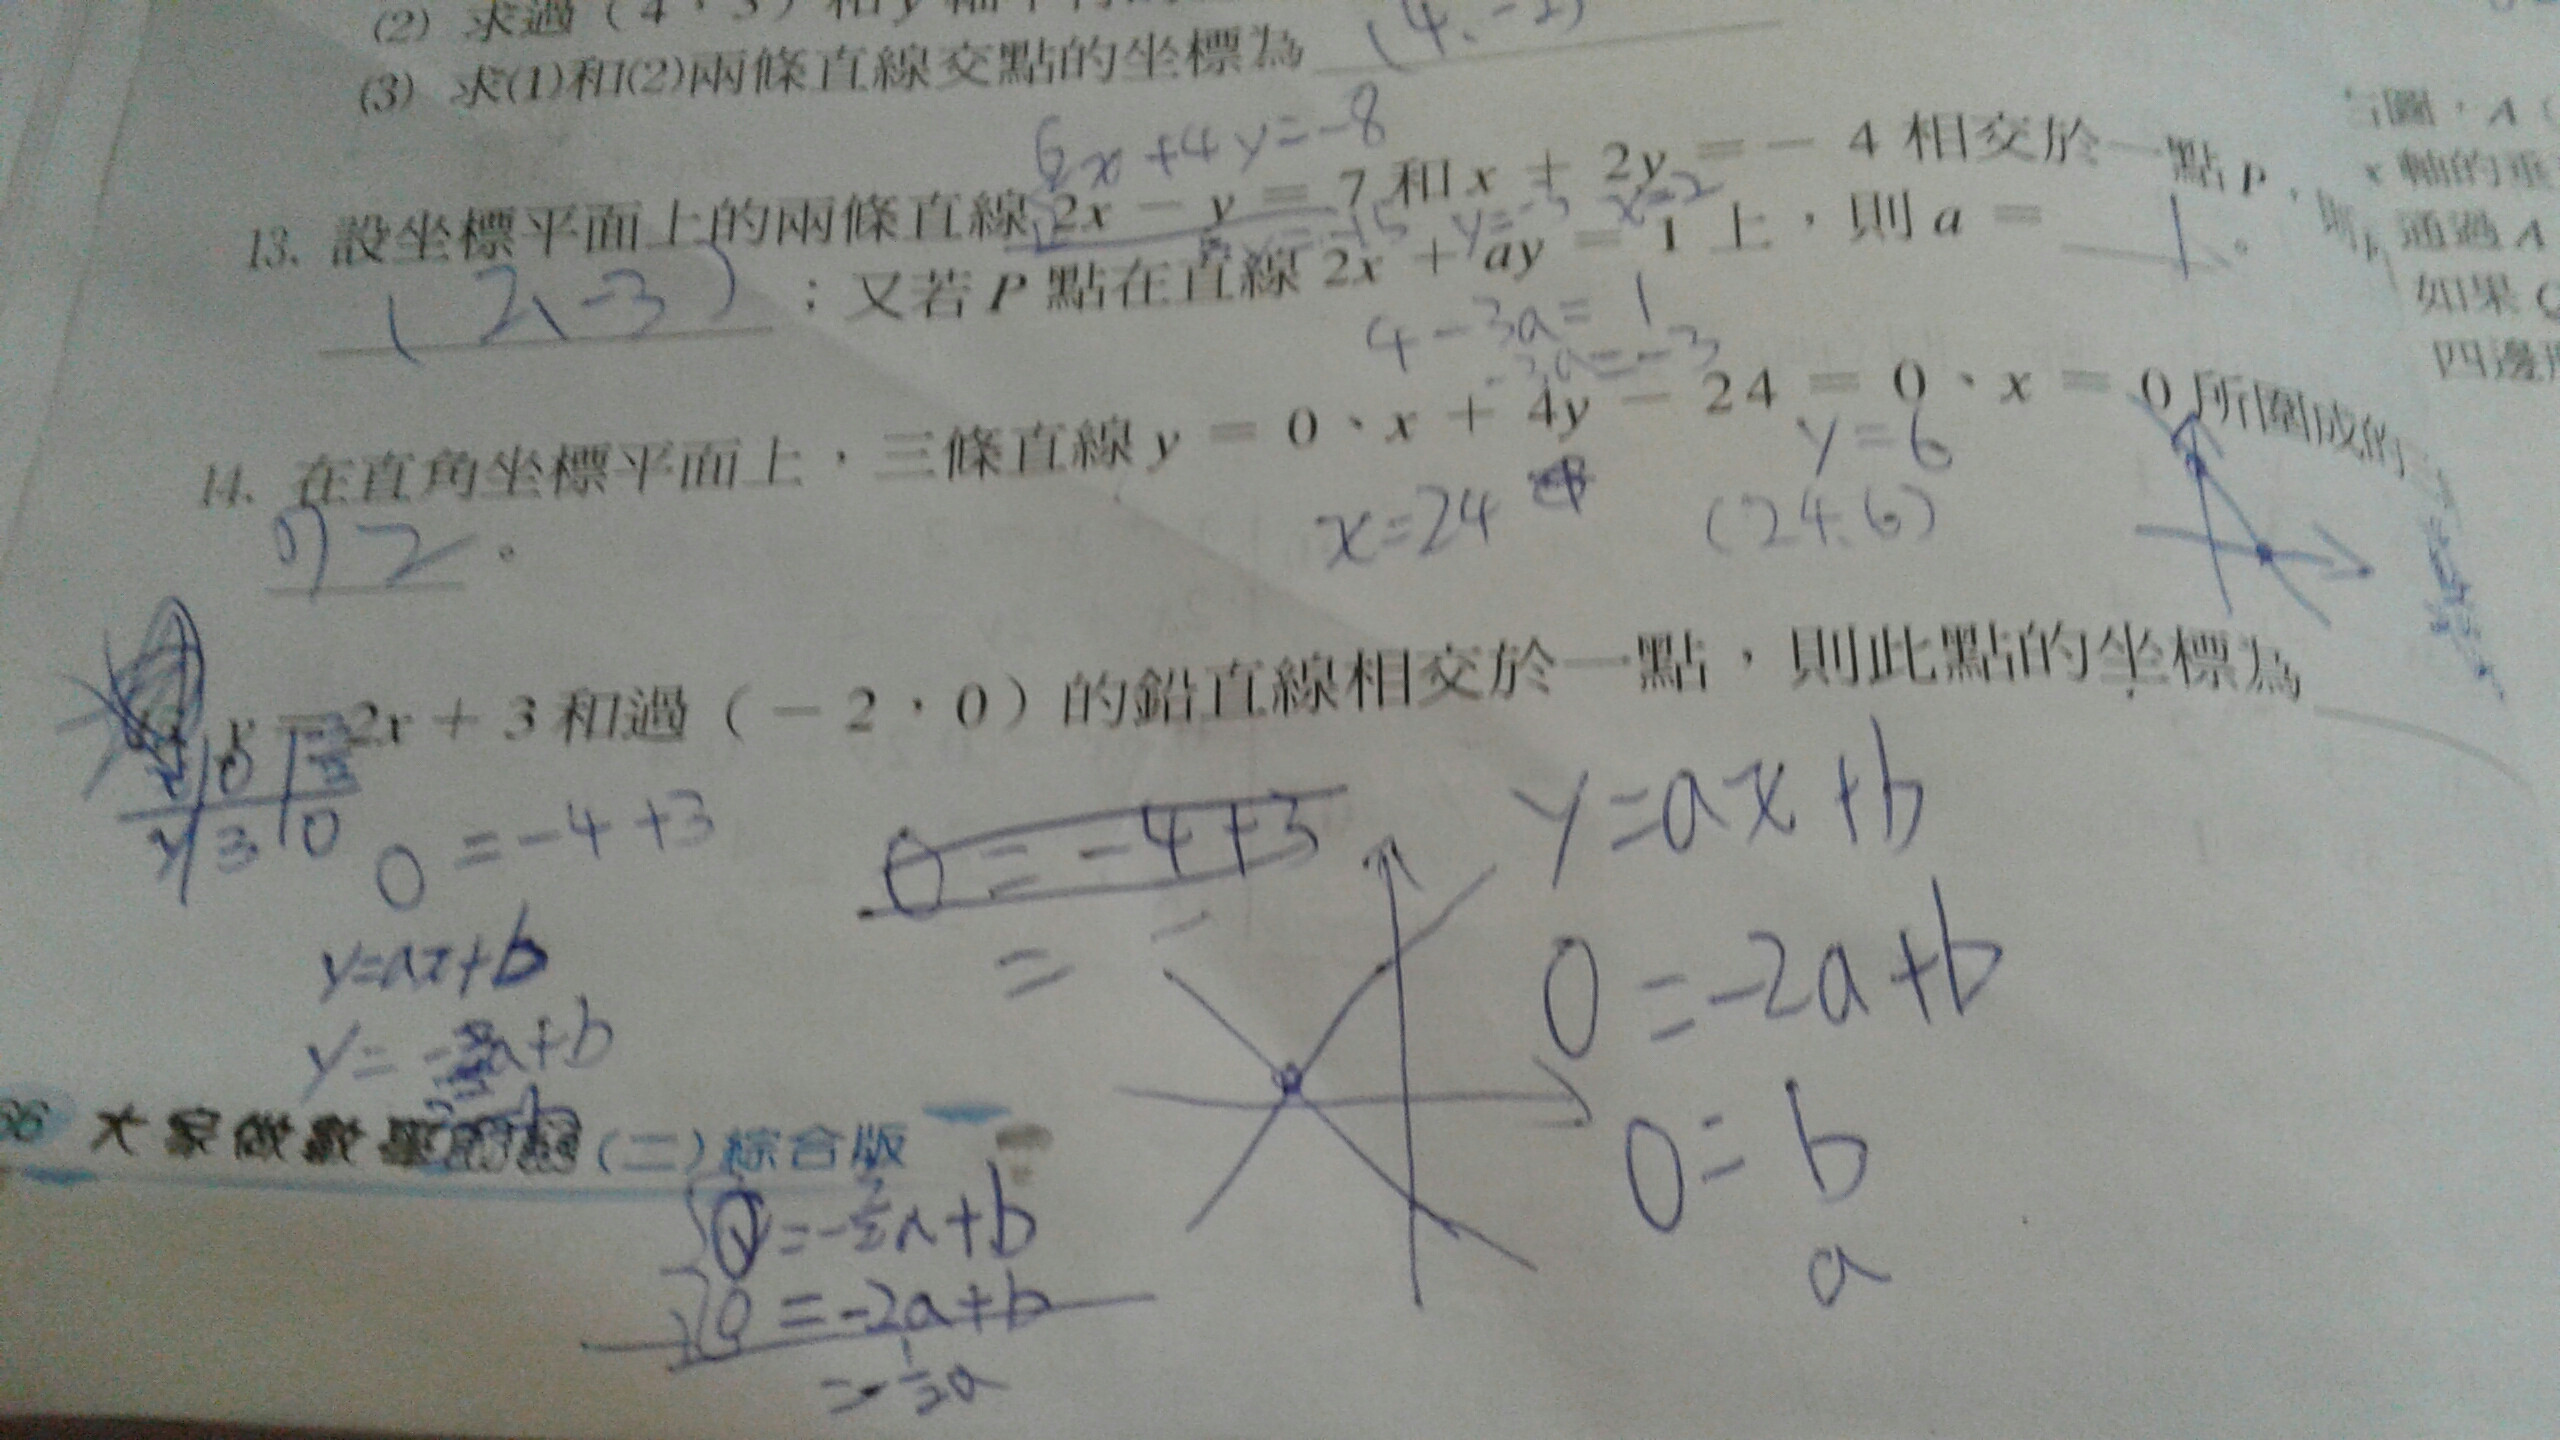 (2) 求過 ( 4 , 3 ) 和 y 軸
(3) 求(1)和(2)兩條直線交點的坐標為
6x+4y=-8
13. 設坐標平面上的兩條直線 2x - y = 7 和 x + 2y = - 4 相交於一點 P ,則
y=-3 x=2
(2,-3) ; 又若 P 點在直線 2x + ay = 1 上,則 a = 1 。
4-3a=1
-3a=-3
14. 在直角坐標平面上,三條直線 y = 0、x + 4y - 24 = 0、x = 0 所圍成的
y=6
72 。
x=24
(24.6)
2x + 3 和過 ( - 2 , 0 ) 的鉛直線相交於一點,則此點的坐標為
x 0
y 3 0
0=-4+3
0=-4+3
=
y=ax+b
0=-2a+b
0=b
a
y=ax+b
大家做數 (二)綜合版
0=-2a+b
右圖,A (
x 軸的垂
通過 A
如果
四邊